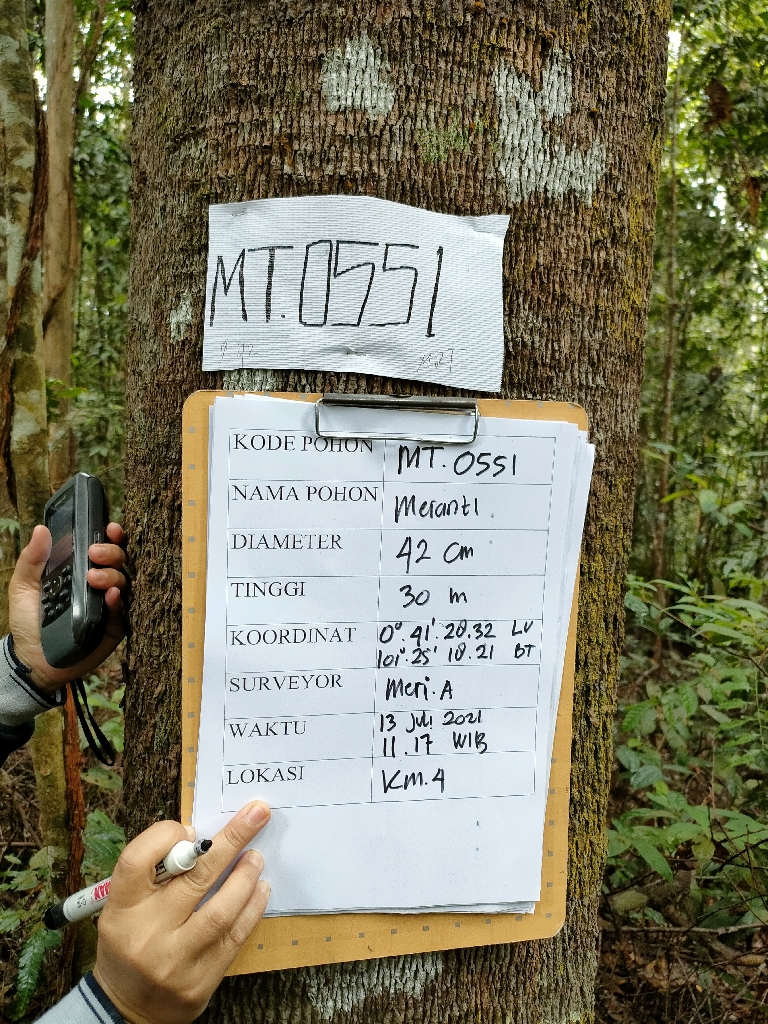 MT.0551
KODE POHON MT.0551
NAMA POHON Meranti
DIAMETER 42 cm
TINGGI 30 m
KOORDINAT 0°.41'.28.32 LU
101°.25' 18.21 BT
SURVEYOR Meri.A
WAKTU 13 Juli 2021
11.17 WIB
LOKASI KM.4